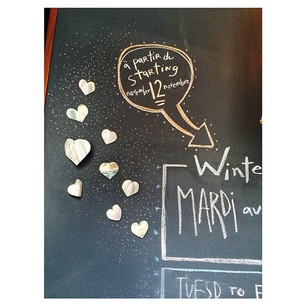 à partir du
starting
november 12 novembre
Winte
MARDI au
TUESD TO F